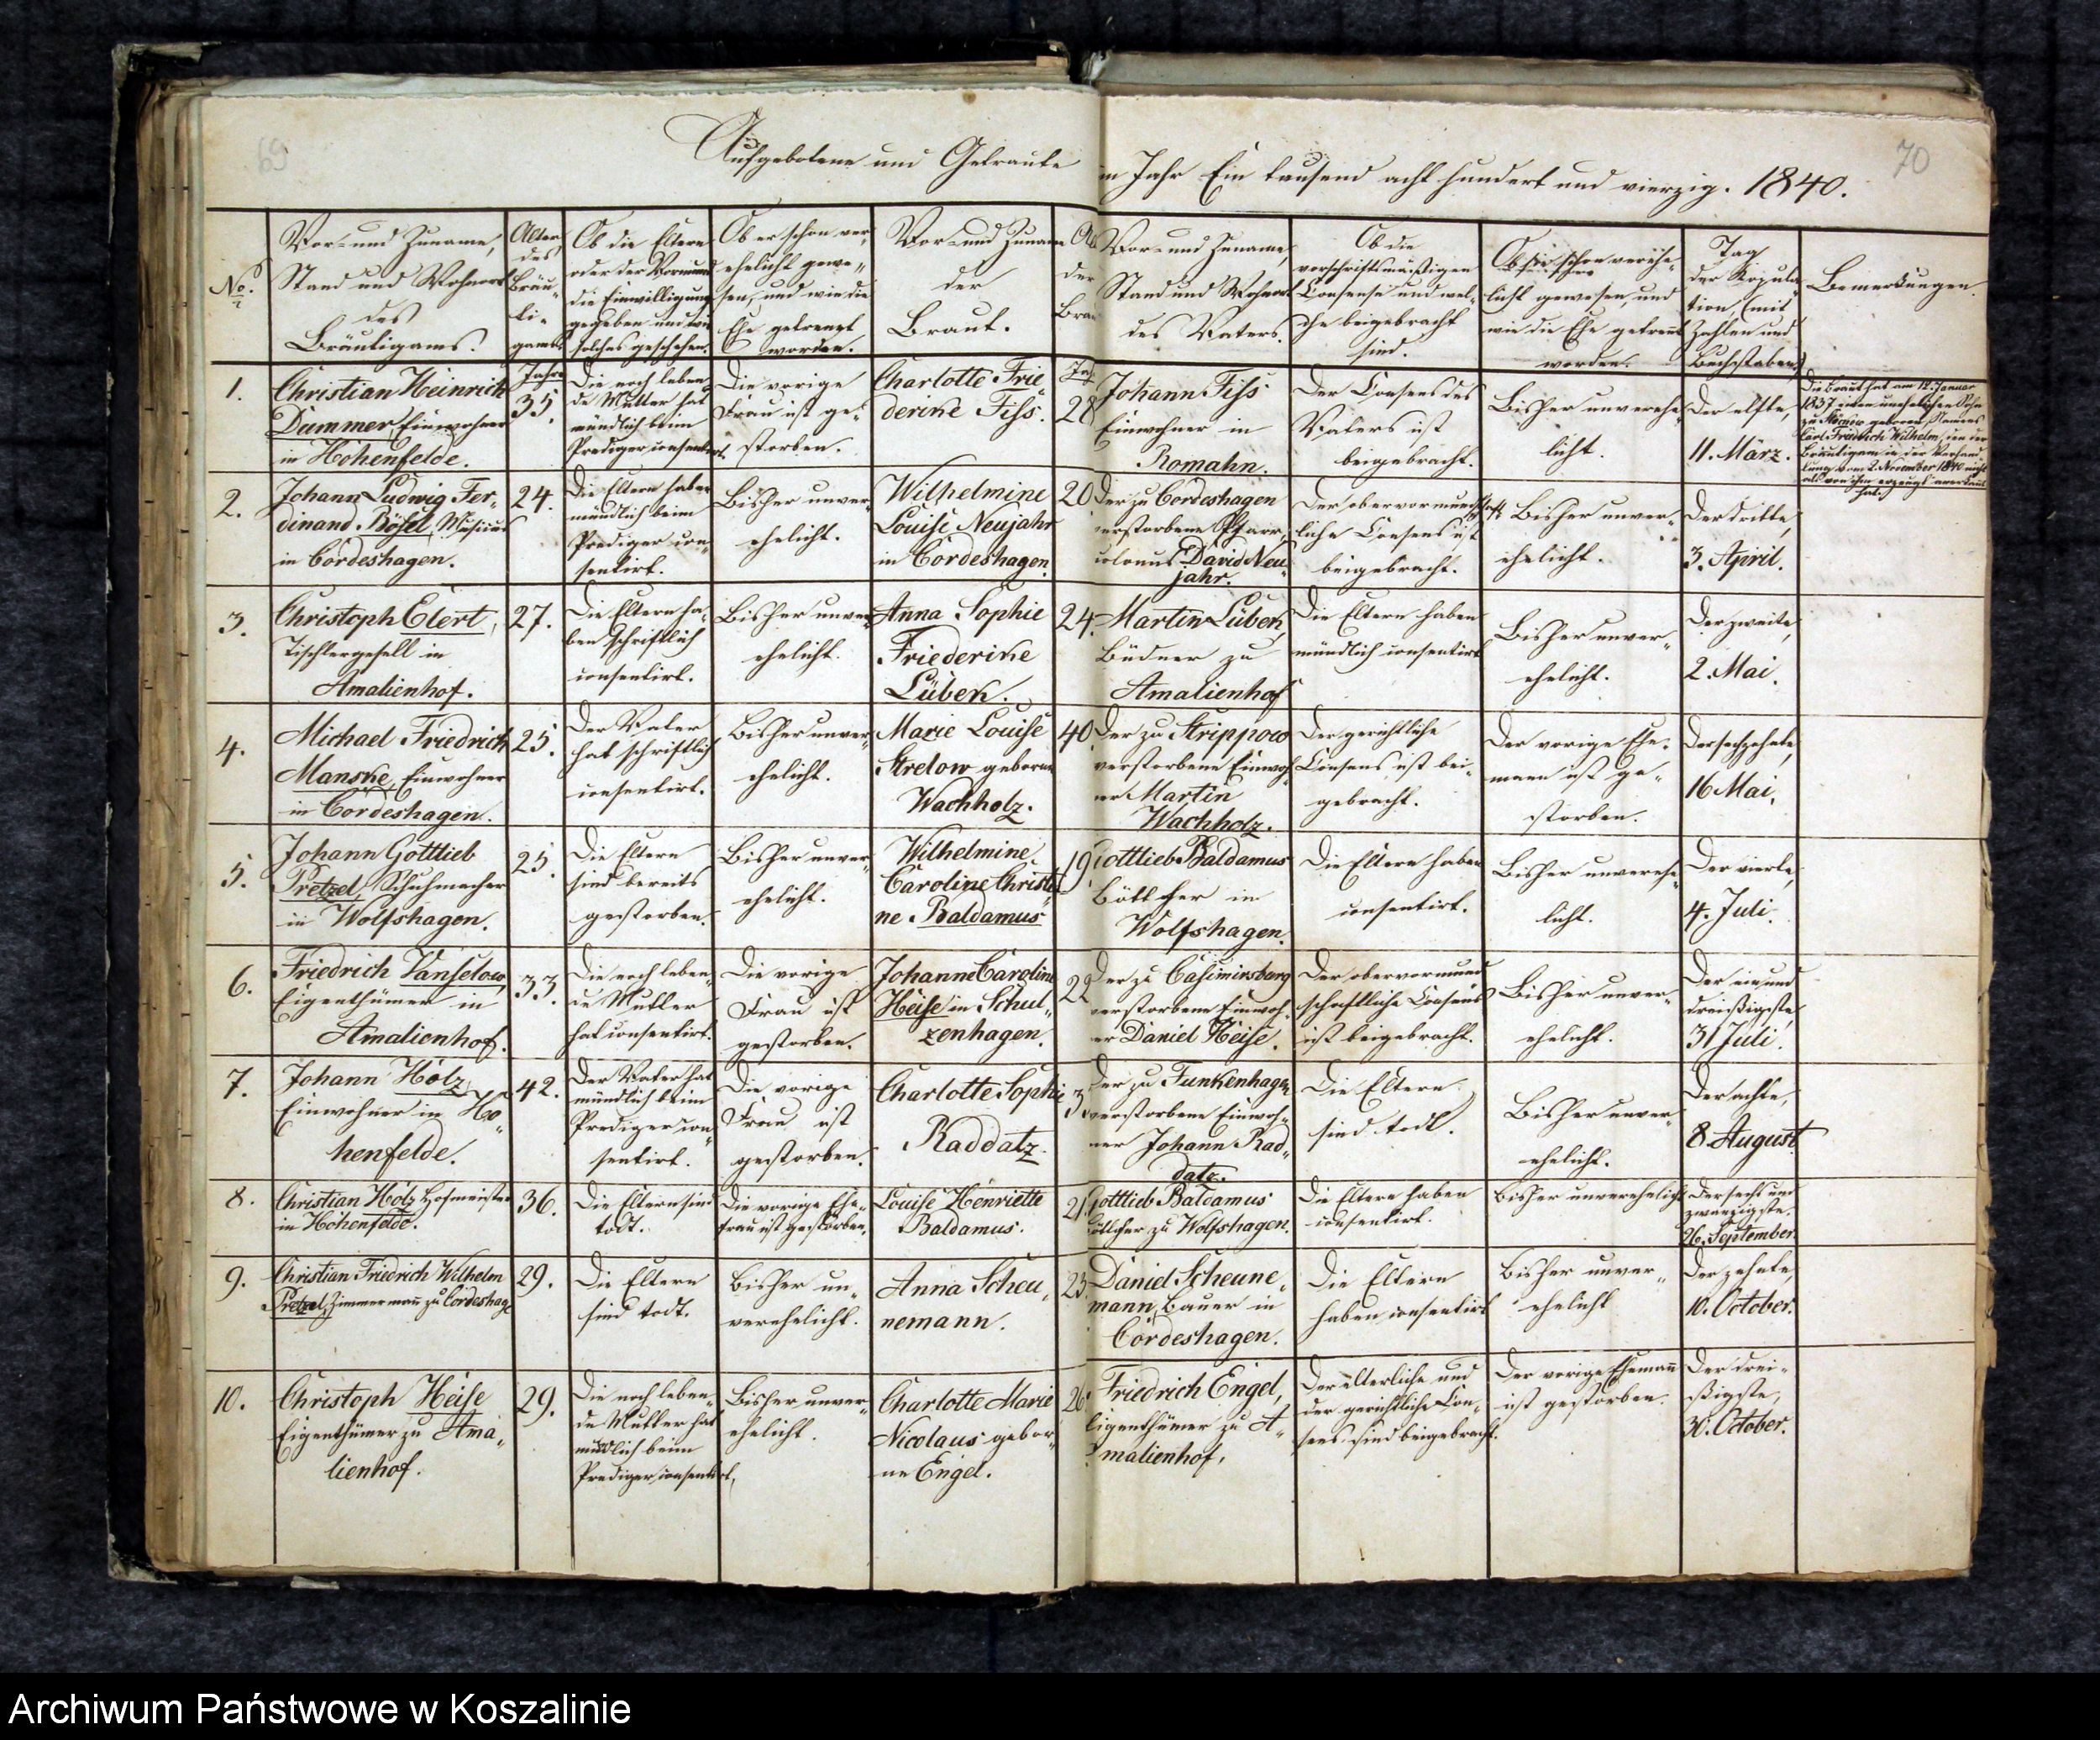 69
70
Aufgebotene und Getraute im Jahr Ein tausend acht hundert und vierzig. 1840.
No.
Vor- und Zuname,
Stand und Wohnort
des
Bräutigams.
Alter
des
Bräu-
ti-
gams.
Ob die Eltern
oder der Vormund
die Einwilligung
gegeben und wie
solches geschehen.
Ob er schon ver-
ehelicht gewe-
sen, und wie die
Ehe getrennt
worden.
Vor- und Zuname
der
Braut.
der
Vor- und Zuname,
Stand und Wohnort
des Vaters.
Ob die
vorschriftsmäßigen
Consense und wel-
che beigebracht
sind.
Ob sie schon verehe-
licht gewesen, und
wie die Ehe getrennt
worden.
Tag
der Kopula-
tion, (mit
Zahlen und
Buchstaben)
Bemerkungen.
1.
Christian Heinrich
Dummer, Einwohner
in Hohenfelde.
Jahre
35.
Die noch leben-
de Mutter hat
mündlich beim
Prediger consentirt.
Die vorige
Frau ist ge-
storben.
Charlotte Frie-
derike Tiss.
28
Johann Tiss
Einwohner in
Romahn.
Der Consens des
Vaters ist
beigebracht.
Bisher unverehe-
licht.
Der elfte,
11. März.
Die Braut hat am 12. Januar
1837 einen unehelichen Sohn
geboren, Namens
Carl Friedrich Wilhelm, den der
Bräutigam in der Verhand-
lung vom 2. November 1840 nicht
als von ihm erzeugt anerkannt
hat.
2.
Johann Ludwig Fer-
dinand Bösel, Musicus
in Cordeshagen.
24.
Die Eltern haben
mündlich beim
Prediger con-
sentirt.
Bisher unver-
ehelicht.
Wilhelmine
Louise Neujahr
in Cordeshagen.
20
Der zu Cordeshagen
verstorbene Pfarr-
colonus David Neu-
jahr.
Der obervormundschaft-
liche Consens ist
beigebracht.
Bisher unver-
ehelicht.
Der dritte,
3. April.
3.
Christoph Elert,
Tischlergesell in
Amalienhof.
27.
Die Eltern ha-
ben schriftlich
consentirt.
Bisher unver-
ehelicht.
Anna Sophie
Friederike
Lübek.
24.
Martin Lübek,
Büdner zu
Amalienhof
Die Eltern haben
mündlich consentirt
Bisher unver-
ehelicht.
Der zweite,
2. Mai.
4.
Michael Friedrich
Manske, Einwohner
in Cordeshagen.
25.
Der Vater
hat schriftlich
consentirt.
Bisher unver-
ehelicht.
Marie Louise
Strelow geborne
Wachholz.
40
Der zu Strippow
verstorbene Einwoh-
ner Martin
Wachholz.
Der gerichtliche
Consens ist bei-
gebracht.
Der vorige Ehe-
mann ist ge-
storben.
Der sechzehnte,
16 Mai.
5.
Johann Gottlieb
Pretzel, Schuhmacher
in Wolfshagen.
25.
Die Eltern
sind bereits
gestorben.
Bisher unver-
ehelicht.
Wilhelmine
Caroline Christi-
ne Baldamus
19
Gottlieb Baldamus
Böttcher in
Wolfshagen.
Die Eltern haben
consentirt.
Bisher unverehe-
licht.
Der vierte,
4. Juli.
6.
Friedrich Vanselow,
Eigenthümer in
Amalienhof.
33.
Die noch leben-
de Mutter
hat consentirt.
Die vorige
Frau ist
gestorben.
Johanne Caroline
Heise in Schul-
zenhagen.
22
Der zu Casimirsburg
verstorbene Einwoh-
ner Daniel Heise.
Der obervormund-
schaftliche Consens
ist beigebracht.
Bisher unver-
ehelicht.
Der ein und
dreißigste,
31 Juli.
7.
Johann Holz,
Einwohner in Ho-
henfelde.
42.
Der Vater hat
mündlich beim
Prediger con-
sentirt.
Die vorige
Frau ist
gestorben.
Charlotte Sophie
Raddatz.
Der zu Funkenhagen
verstorbene Einwoh-
ner Johann Rad-
datz.
Die Eltern
sind todt.
Bisher unver-
ehelicht.
Der achte,
8. August.
8.
Christian Holz, Hofmeister
in Hohenfelde.
36.
Die Eltern sind
todt.
Die vorige Ehe-
frau ist gestorben.
Louise Henriette
Baldamus.
21
Gottlieb Baldamus
Böttcher zu Wolfshagen.
Die Eltern haben
consentirt.
Bisher unverehelicht
Der sechs und
zwanzigste,
26. September.
9.
Christian Friedrich Wilhelm
Pretzel, Zimmermann zu Cordeshagen
29.
Die Eltern
sind todt.
Bisher un-
verehelicht.
Anna Scheu-
nemann.
23.
Daniel Scheune-
mann, Bauer in
Cordeshagen.
Die Eltern
haben consentirt
Bisher unver-
ehelicht
Der zehnte,
10. October.
10.
Christoph Heise
Eigenthümer zu Ama-
lienhof.
29.
Die noch leben-
de Mutter hat
mündlich beim
Prediger consentirt.
Bisher unver-
ehelicht.
Charlotte Marie
Nicolaus gebor-
ne Engel.
26.
Friedrich Engel,
Eigenthümer zu A-
malienhof.
Der elterliche und
der gerichtliche Con-
sens sind beigebracht.
Der vorige Ehemann
ist gestorben.
Der drei-
ßigste,
30. October.
Archiwum Państwowe w Koszalinie